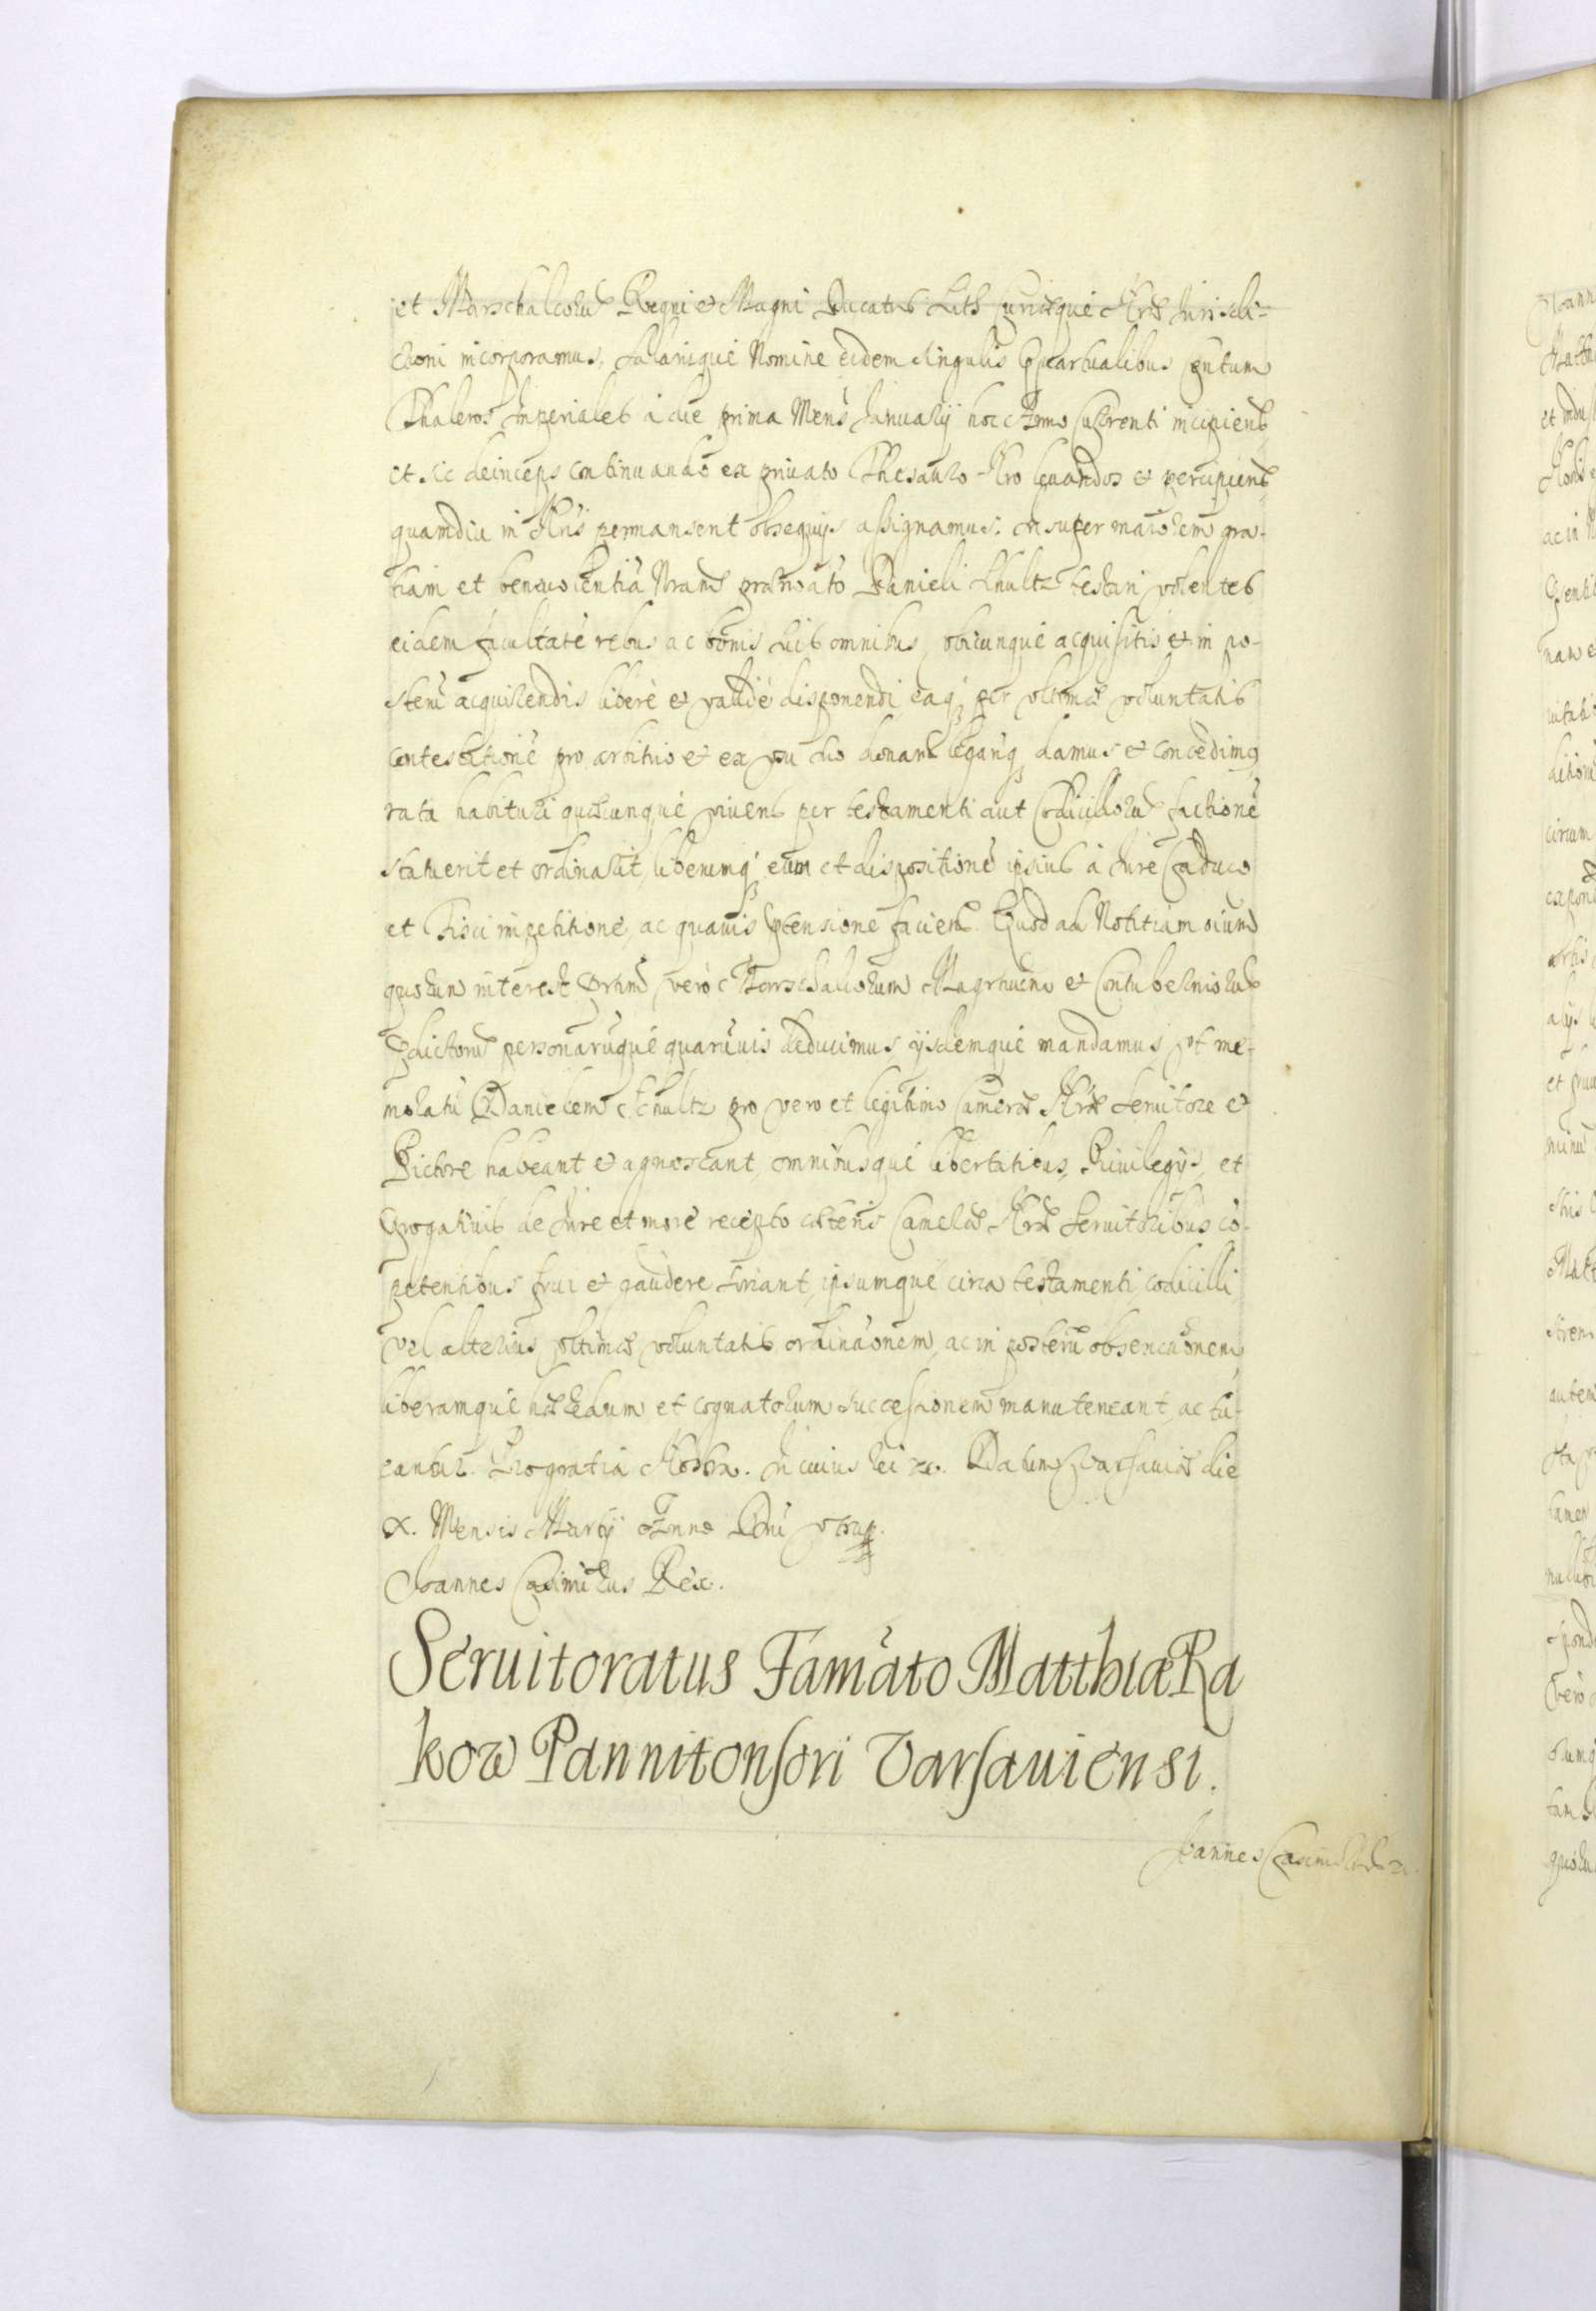 et Marschalcorum Regni et Magni Ducatus Lith Curiæque Nræ Jurisdi-
ctioni incorporamus. Salarijque Nomine eidem singulis Quartualibus centum
Thaleros Imperiales à die prima Mens Januarij hoc Anno Currenti incipiend
et sic deinceps continuando ex priuato Thesauro Nro leuandos et percipiend
quamdiu in Nris permanserit obsequijs assignamus. Insuper maiorem gra-
tiam et beneuolentiã Nram prænoãto Danieli Shultz testari volentes
eidem facultatẽ rebus ac bonis suis omnibus, vbicunque acquisitis et in po-
sterũ acquirendis liberè et validè disponendi, eaq; per vltimæ voluntatis
contestationẽ pro arbitrio et ex vsu suo donand legandq; damus et concedimq
rata habituri quæcunque viuens per testamenti aut Codicillorum factionẽ
statuerit et ordinarit, liberumq; eum et dispositionẽ ipsius à Jure Caduco
et Fisci impetitionè, ac quauis prætensione faciend. Quod ad Notitiam oium
quorum interest Prtim verò Marschallorum Magrtuum et Contuberniorum
Prædictorum personarũque quarũuis deducimus, ijsdemque mandamus, vt me-
moratũ Danielem Schultz pro vero et legitimo Cameræ Nræ Seruitore et
Pictore habeant et agnoscant, omnibusque libertatibus, Priuilegijs, et
Prærogatiuis de Jure et more recepto cæteris Cameræ Nræ Seruitoribus cõ-
petentibus frui et gaudere sinant, ipsumque circa testamenti, codicilli,
vel alterius vltimæ voluntatis ordinãonem, ac in posterũ obseruãonem,
liberamque hæredum et cognatorum successionem manuteneant, ac tu-
eantur. Pro gratia Nostra. In cuius rei &c. Datum Varsauiæ die
X. Mensis Martij Anno Dñi vtsup.
Joannes Casimirus Rex.
Seruitoratus Famãto Matthiæ Ra
kow Pannitonsori Varsauiensi.
Joannes Casimirus